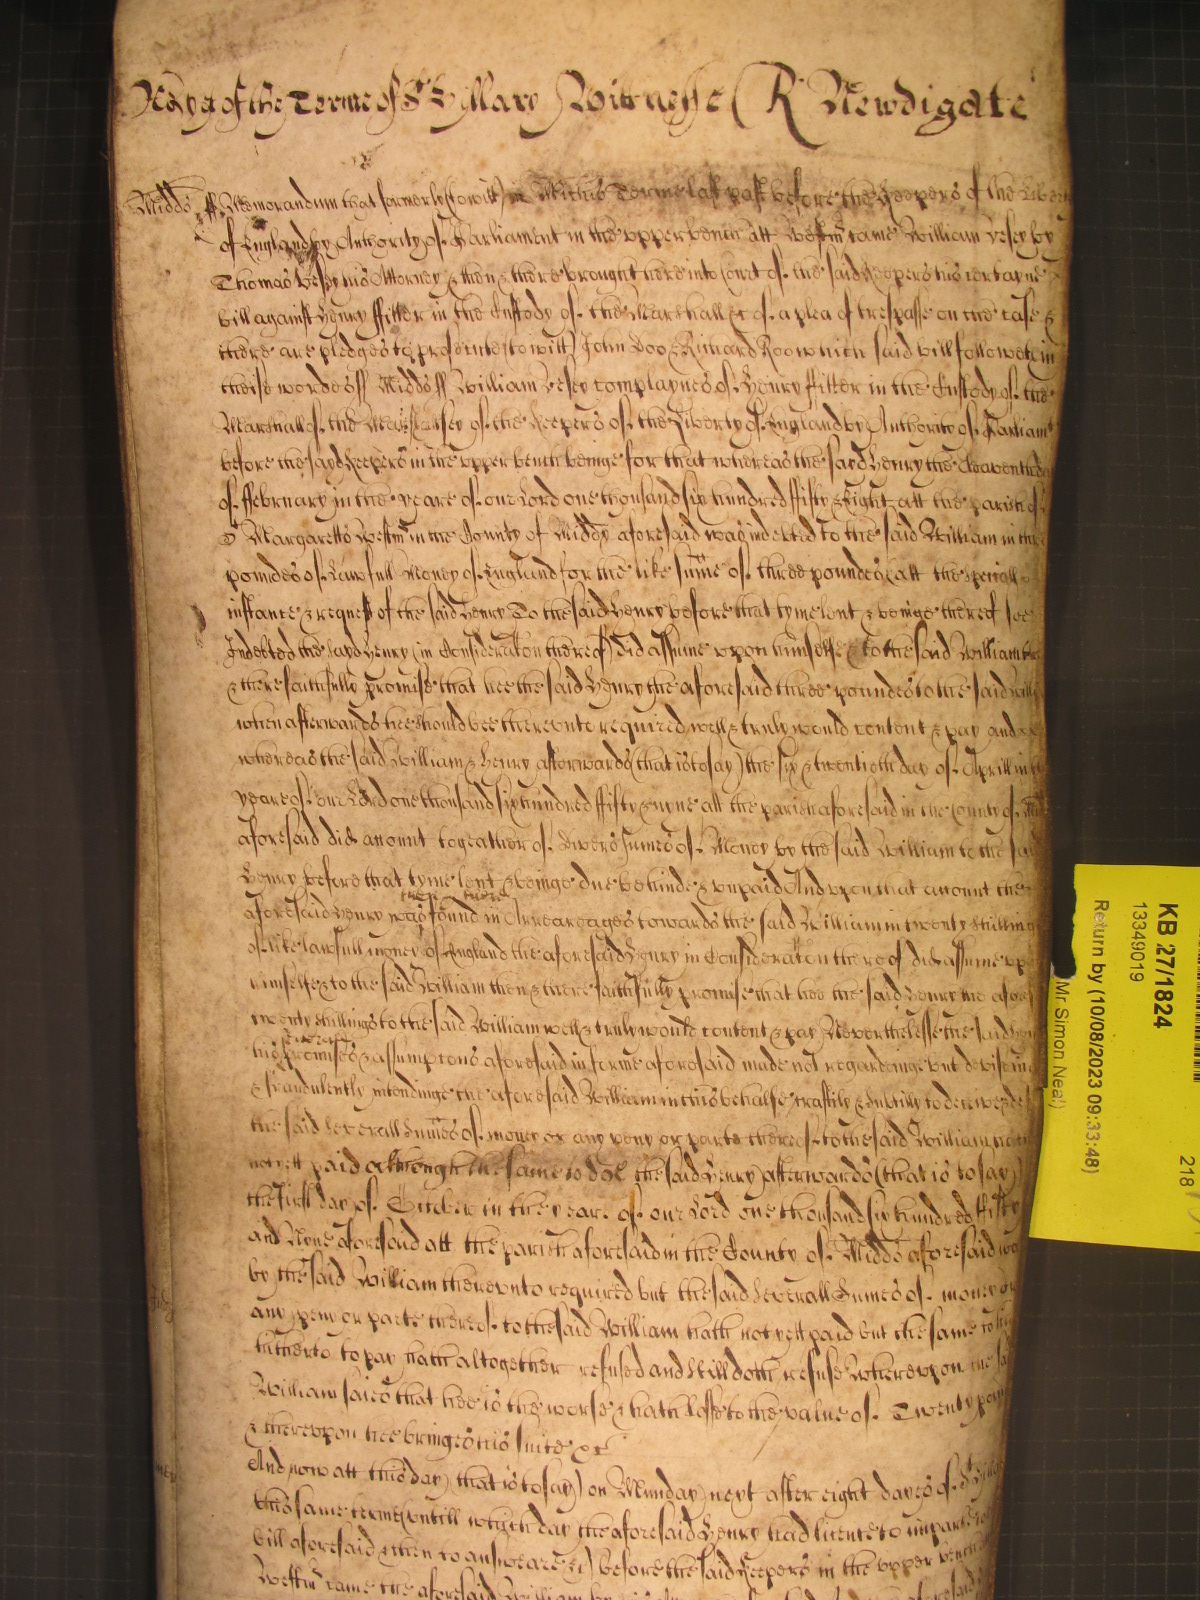 of the Terme of St Hillary Witnesse R Newdigate
Midds ss Memorandum that formerly (to witt) in Michis Terme last past before the Keepers of the Libert
of England by Authority of Parliament in the upper bench att Westmr came William Vesey by
Thomas Vesey his Attorney & then & there brought here into Court of the said Keepers his certayne
bill against Henry ffitter in the Custody of the Marshall &c of a plea of trespasse on the case &
there are pledges to prosecute (to witt) John Doo & Richard Roo which said bill followeth in
theise wordes ss Midds ss William Vesey complaynes of Henry ffitter in the Custody of the
Marshall of the of the Keepers of the Liberty of England by Authority of Parliamt
before the sayd Keepers in the upper bench beinge for that whereas the sayd Henry the Eleaventh day
of ffebruary in the yeare of our Lord one thousand six hundred fifty & Eight att the parish of
St Margaretts Westmr in the County of Midds aforesaid was indebted to the said William in three
poundes of Lawfull Money of England for the like sume of three poundes att the speciall
instance & request of the said Henry To the said Henry before that tyme lent & beinge thereof soe
Indebted the sayd Henry (in Consideraton thereof) did assume upon himselfe & to the said William then
& there faithfully promise that hee the said Henry the aforesaid three poundes to the said Willi
when afterwards hee should bee thereunto required well & truly would content & pay And
whereas the said William & Henry afterwards (that is to say) the six & twentieth day of Aprill in the
yeare of our Lord one thousand six hundred fifty & nyne att the parish aforesaid in the County of Midd
aforesaid did acount togeather of divers sumes of Money by the said William to the said
Henry before that tyme lent & beinge due behinde & unpaid And upon that acount the
then there
aforesaid Henry was found in Arrearages towards the said William in twenty shillings
of like lawfull money of England the aforesaid Henry in Consideraton thereof did assume upon
himselfe & to the said William then & there faithfully promise that hee the said Henry the afores
twenty shillings to the said William well & truly would content & pay Neverthelesse the said Hen
severall
his promises & assumptons aforesaid in forme aforesaid made not regardeinge but deviseing
& fraudulently intendinge the aforesaid William in this behalfe craftily & subtilly to deceive & de
the said severall sumes of money or any peny or parte thereof to the said William
not yett paid although the same to doe the said Henry afterwards (that is to say)
the first day of October in the yeare of our Lord one thousand six hundred fifty
and Nyne aforesaid att the parish aforesaid in the County of Midds aforesaid was
by the said William thereunto required but the said severall Sumes of money or
any peny or parte thereof to the said William hath not yett paid but the same to him
hitherto to pay hath altogether refused and still doth refuse Whereupon the said
William saies that hee is the worse & hath losse to the value of Twenty poun
& thereupon hee bringes his suite &c
And now att this day (that is to say) on Munday next after eight dayes of St Hillary
this same terme untill which day the aforesaid Henry had licence to imparle
bill aforesaid & then to answeare &c before the said Keepers in the upper bench
Westmr came the aforesaid William by
KB 27/1824
13349019
Return by (10/08/2023 09:33:48)
Mr Simon Neal)
218